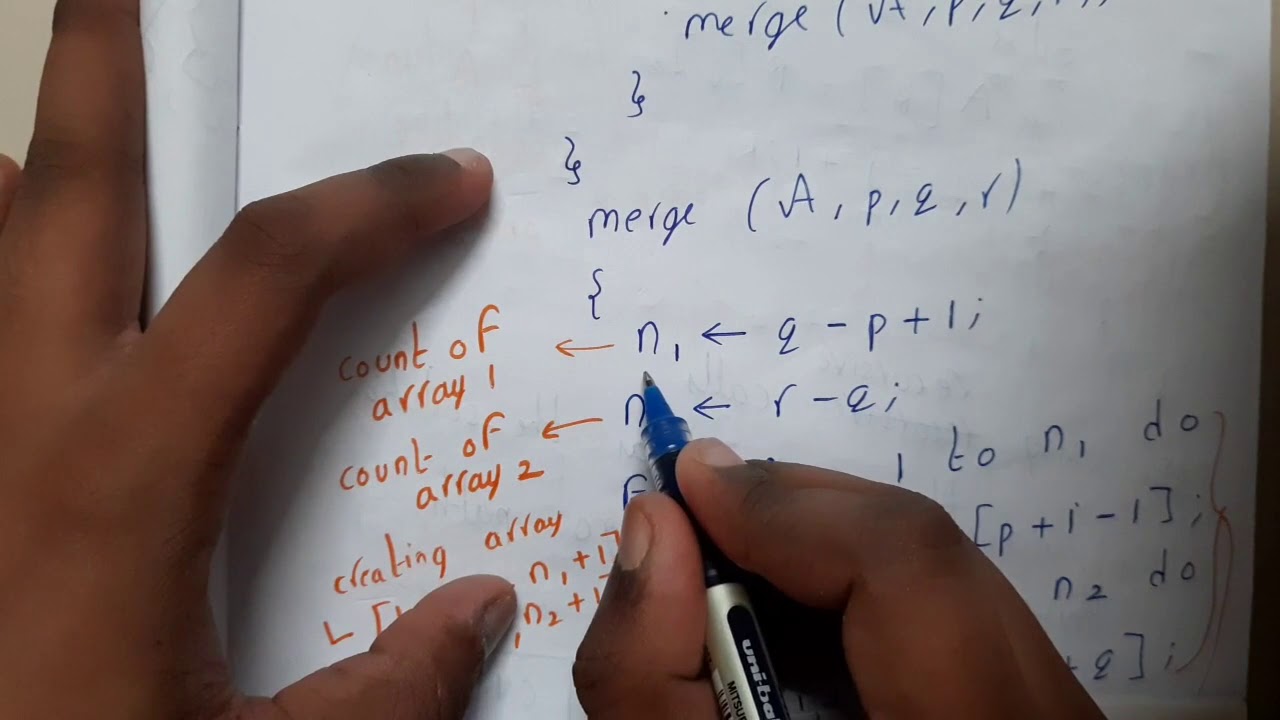 merge ( A , p , q , r )
}
}
merge ( A , p , q , r )
{
count of array 1 ← n₁ ← q - p + 1 ;
count of array 2 ← n ← r - q ;
1 to n₁ do
creating array [p + i - 1] ;
L [ n₁ + 1]
n₂ do
, n₂ + 1
+ q ] ;
uni-ba
MITSU